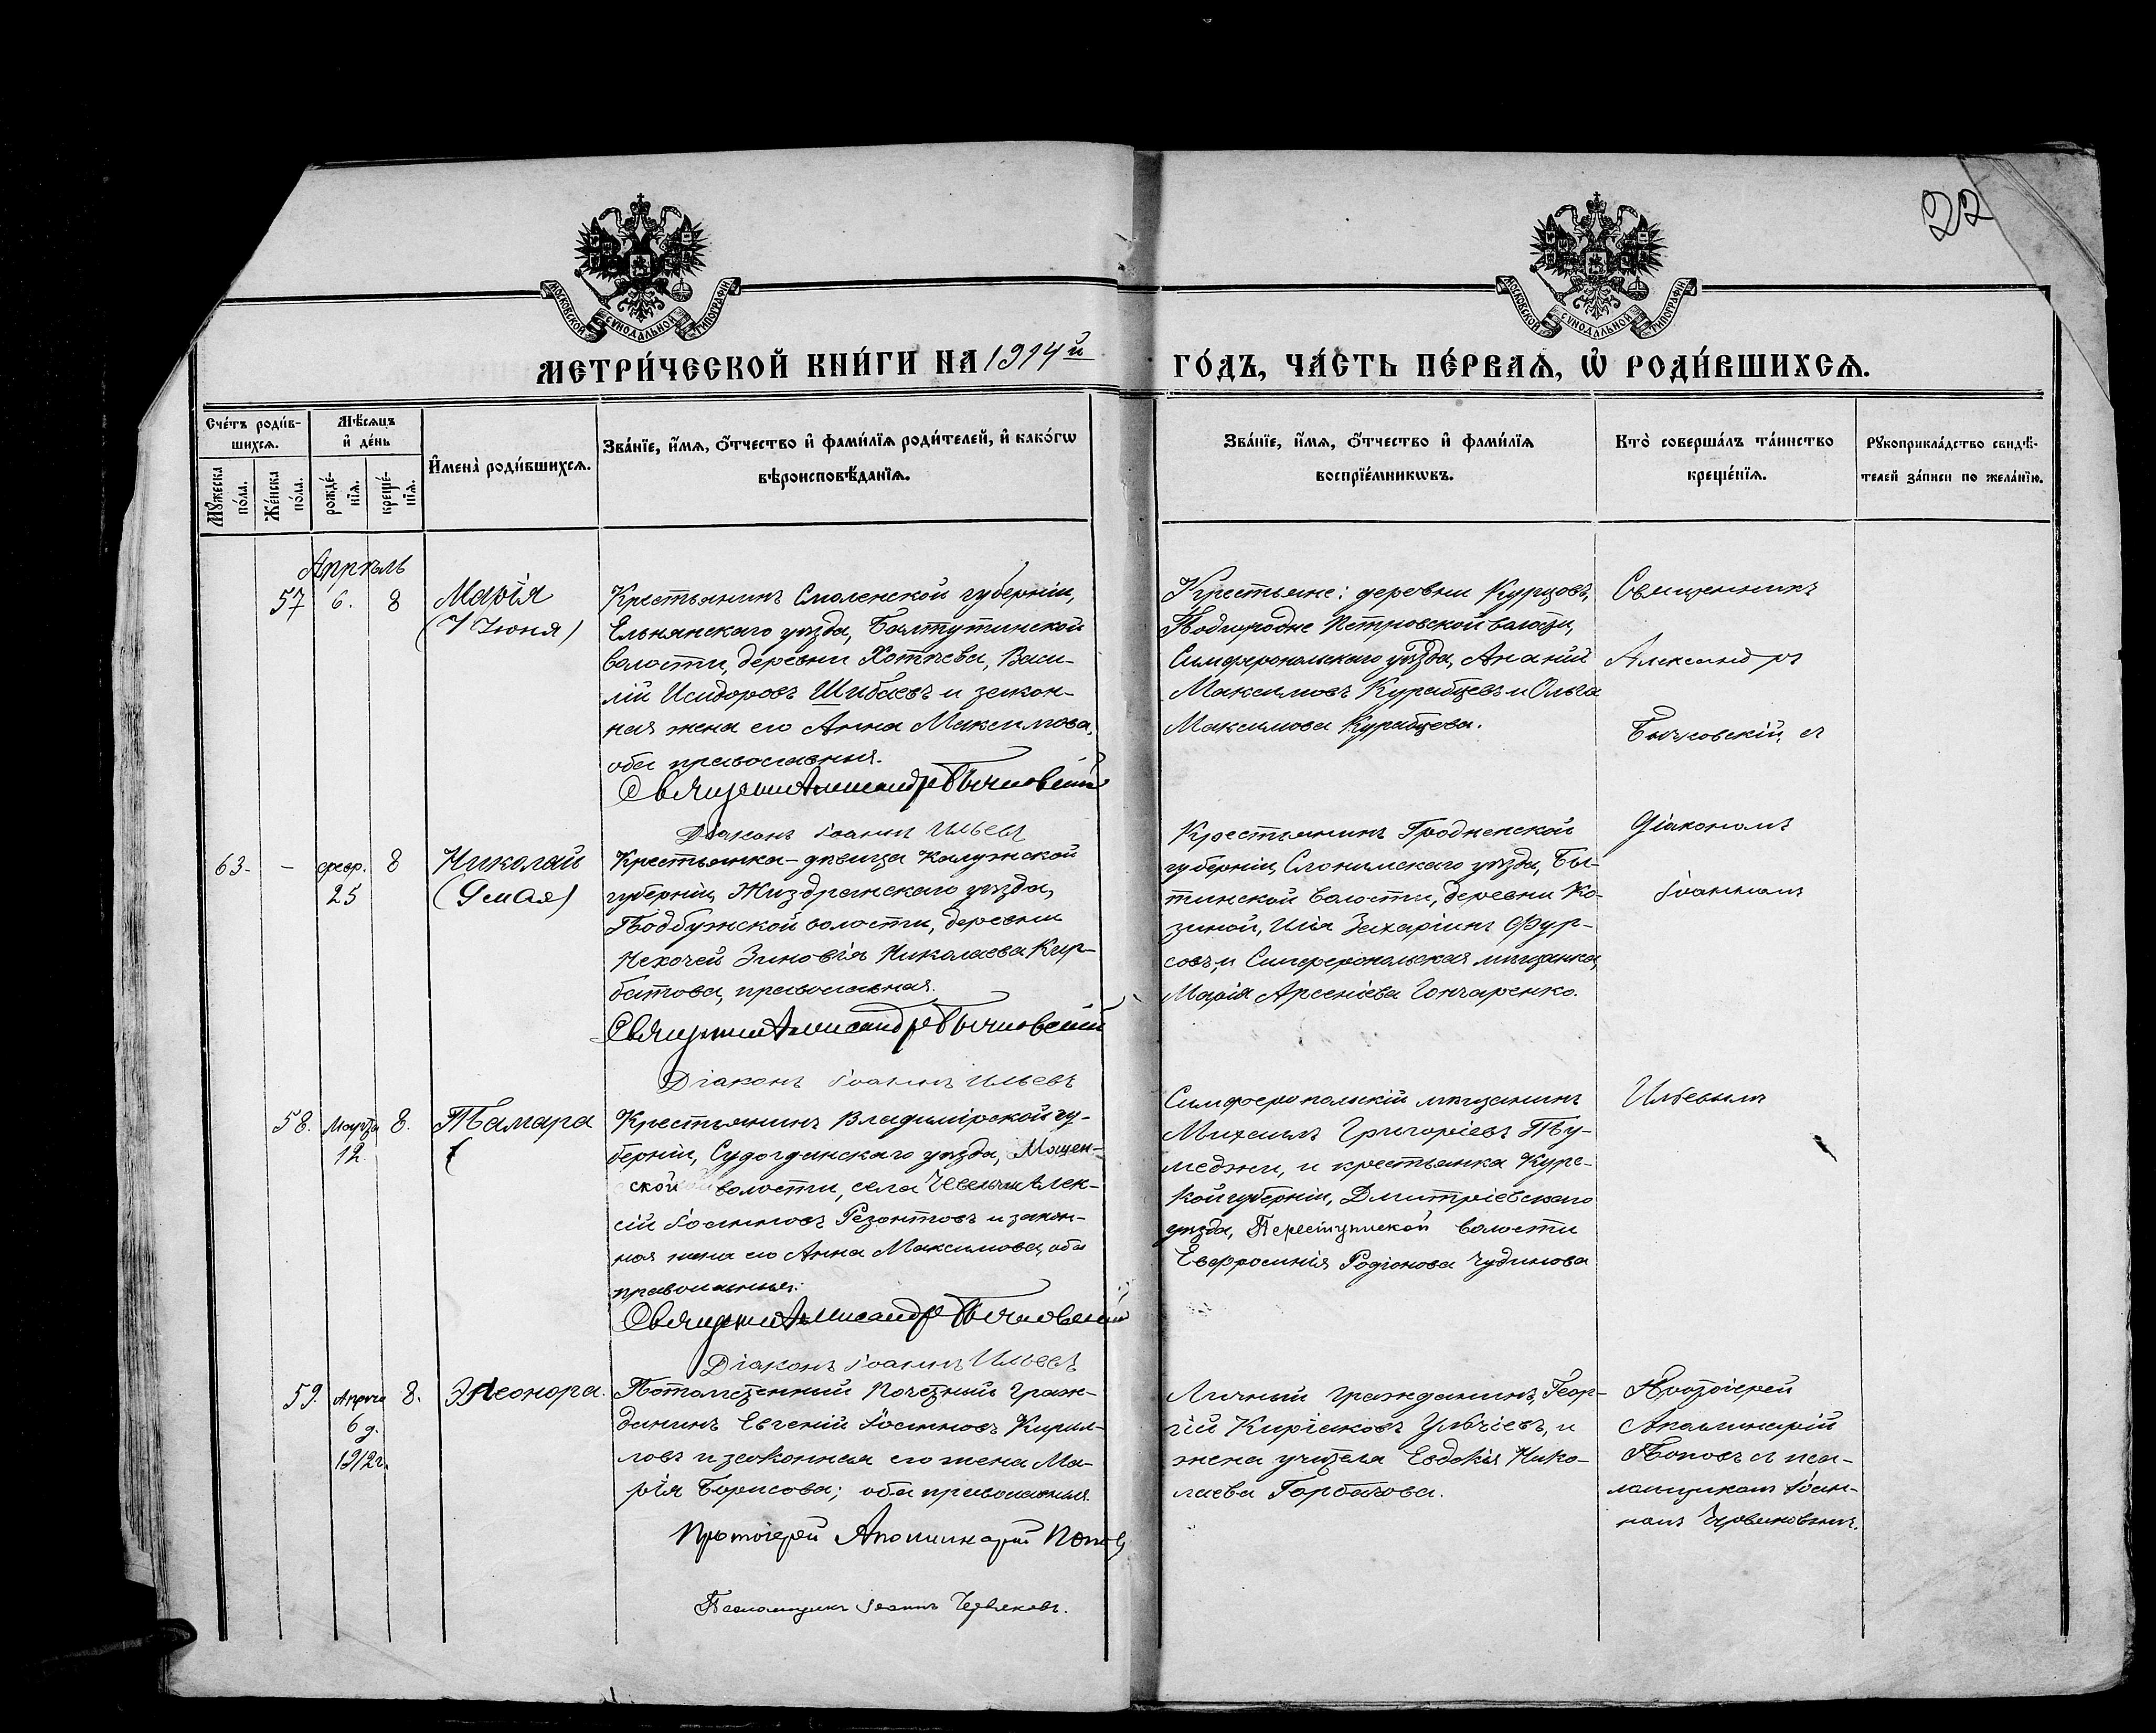 22
МОСКОВСКОЙ СѴНОДАЛЬНОЙ ТИПОГРАФІИ
МОСКОВСКОЙ СѴНОДАЛЬНОЙ ТИПОГРАФІИ
МЕТРИ́ЧЕСКОЙ КНИ́ГИ НА 1914й ГО́ДЪ, ЧА́СТЬ ПЕ́РВАѦ, Ѽ РОДИ́ВШИХСѦ.
Сче́тъ роди́в-
шихсѧ.
Мꙋжеска по́ла.
Же́нска по́ла.
Мѣ́сѧцъ
и҆ де́нь
рожде́-
нїѧ.
креще́-
нїѧ.
И҆мена̀ роди́вшихсѧ.
Зва́нїе, и҆́мѧ, ѻ҆́тчество и҆ фами́лїѧ роди́телей, и҆ како́гѡ
вѣроисповѣ́данїѧ.
Зва́нїе, и҆́мѧ, ѻ҆́тчество и҆ фами́лїѧ
воспрїе́мникѡвъ.
Кто̀ соверша́лъ та́инство
креще́нїѧ.
Рꙋкоприкла́дство свидѣ́-
телей за́писи по жела́нїю.
Апрѣль
57 6. 8
Марія
(7 Іюня)
Крестьянинъ Смоленской губерніи,
Ельнянскаго уѣзда, Балтутинской
волости, деревни Хотѣева, Васи-
лій Исидоровъ Шибаевъ и закон-
ная жена его Анна Максимова,
оба православные.
Священникъ Александръ Бычковскій
Діаконъ Іоаннъ Ильевъ
Крестьяне: деревни Курцовъ,
Подгородне Петровской волости,
Симферопольскаго уѣзда, Ананій
Максимовъ Курабцевъ и Ольга
Максимова Курабцева.
Священникъ
Александръ
Бычковскій съ
63. - февр. 8
25
Николай
(9 мая)
Крестьянка-дѣвица Калужской
губерніи, Жиздринскаго уѣзда,
Подбужской волости, деревни
Нехочей Зиновія Николаева Кур-
батова, православная.
Священникъ Александръ Бычковскій
Діаконъ Іоаннъ Ильевъ
Крестьянинъ Гродненской
губерніи, Слонимскаго уѣзда, Бы-
тинской волости, деревни Ко-
зиной, Илія Захаріинъ Фур-
совъ, и Симферопольская мѣщанка,
Марія Арсеніева Гончаренко.
діакономъ
Іоанномъ
58. Марта 8.
12.
Тамара
(
Крестьянинъ Владимірской гу-
берніи, Судогдинскаго уѣзда, Мошен-
ской волости, села Алек-
сій Іоанновъ Резонтовъ и закон-
ная жена его Анна Максимова, оба
православные.
Священникъ Александръ Бычковскій
Діаконъ Іоаннъ Ильевъ
Симферопольскій мѣщанинъ
Михаилъ Григоріевъ Ту-
меджи, и крестьянка Курс-
кой губерніи, Дмитріевскаго
уѣзда, волости
Евфросинія Родіонова Чудинова
Ильевымъ
59. Апрѣля 8.
6 д.
1912 г.
Элеонора.
Потомственный Почетный Граж-
данинъ Евгеній Іоанновъ Кирил-
ловъ и законная его жена Ма-
рія Борисова; оба православные.
Протоіерей Аполлинарій Поповъ
Псаломщикъ Іоаннъ Червяковъ.
Личный гражданинъ, Геор-
гій Киріаковъ и
жена учителя Евдокія Нико-
лаева Горбачова.
Протоіерей
Аполлинарій
Поповъ съ пса-
ломщикомъ Іоан-
номъ Червяковымъ.